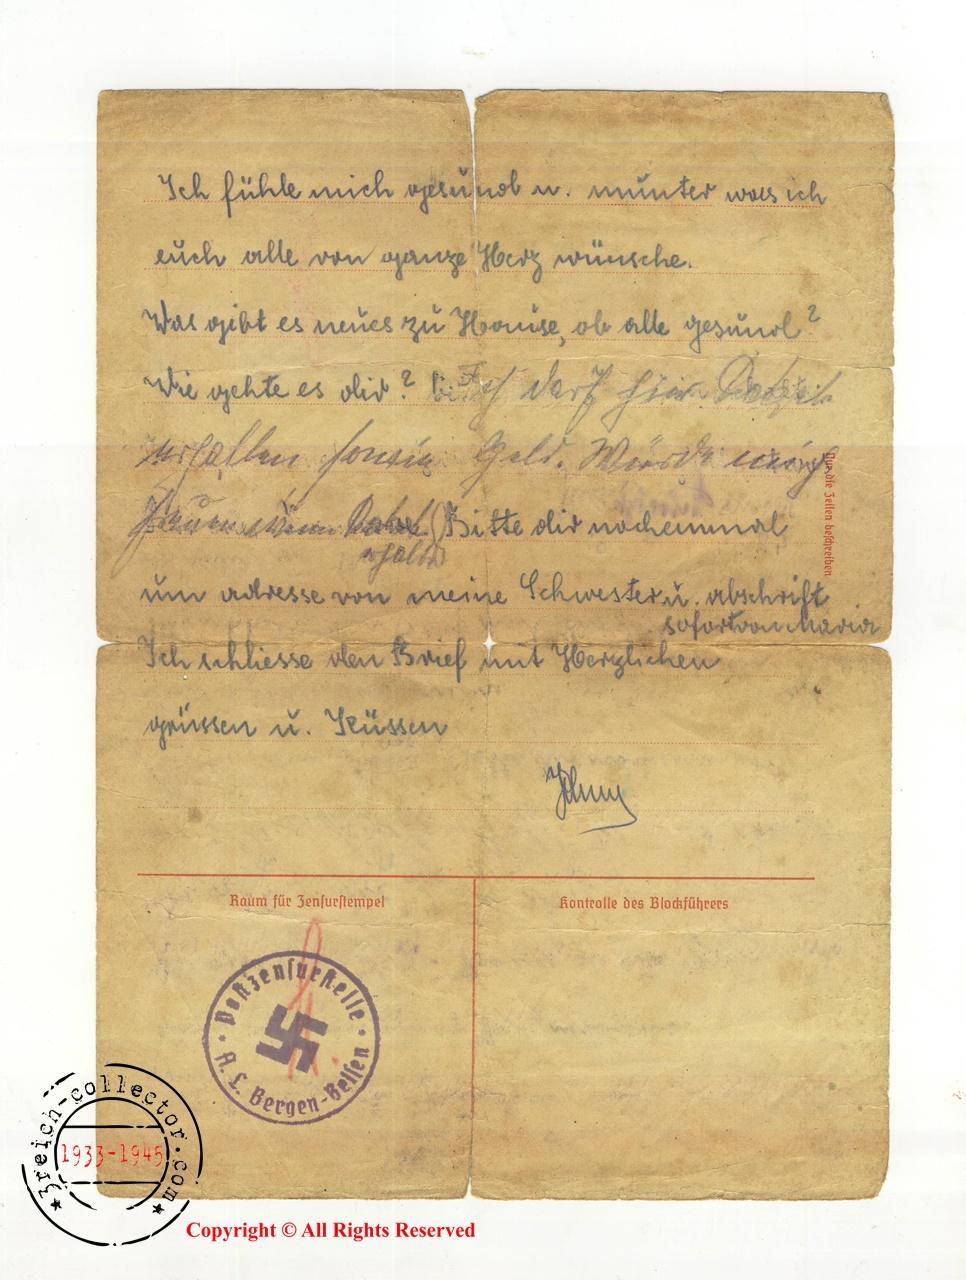 Ich fühle mich gesund u. munter was ich
euch alle von ganze Herz wünsche.
Was gibt es neues zu Hause, ob alle gesund?
Wie gehte es dir? Ich darf hier Paket
erhalten sowie Geld. Würde mich
freuen wenn Paket
erhalte
Bitte dir nocheinmal
um adresse von meine Schwester u. abschrift
sofort von Maria
Ich schliesse den Brief mit Herzlichen
grüssen u. Küssen
Nur die Zeilen beschreiben
Raum für Zensurstempel
Kontrolle des Blockführers
Postzensurstelle
A. L. Bergen-Belsen
3reich-collector.com
1933-1945
Copyright © All Rights Reserved